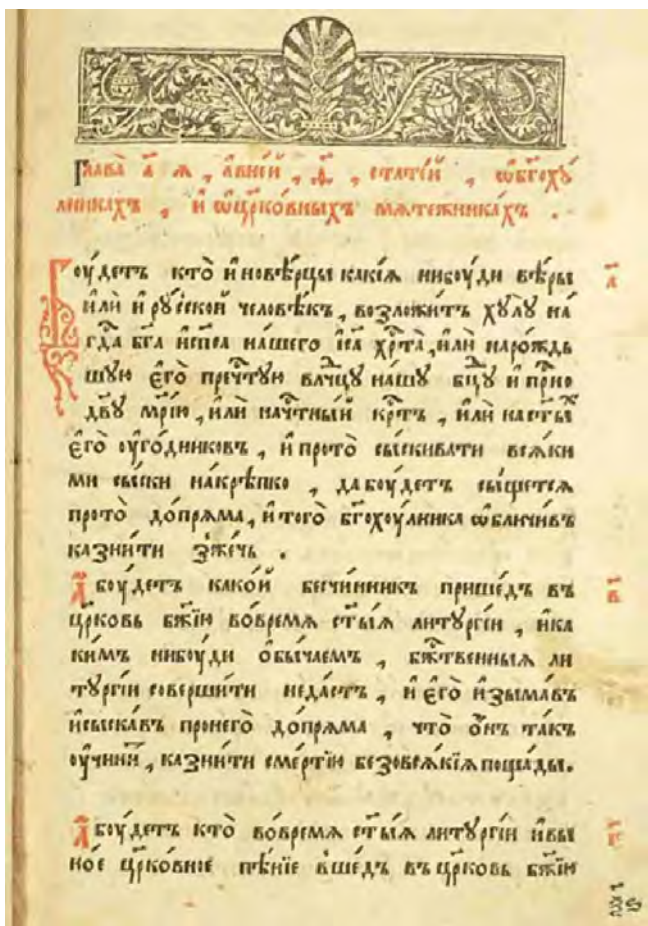 Глава̀ а҃ я, а҆ в̾ней, ѳ҃, статей, ѡ҆бг҃охꙋ́
лникахъ, и҆ ѡ҆цр҃ко́вныхъ мяте́жникахъ.
Боу́детъ кто̀ и҆нове́рцы какі́я нибоу́ди вѣ́ры а҃
и҆лѝ и҆ рꙋ́сской человѣ́къ, возложи́тъ хꙋлꙋ̀ на́
гд҃а бг҃а и҆ сп҃са на́шего і҆са хр҃та̀, и҆лѝ наро́ждь
шꙋю є҆го̀ пречⷭ҇тꙋю влⷣчцꙋ на́шꙋ бц҃ꙋ и҆ при́о
дв҃ꙋ мр҃і́ю, и҆лѝ начⷭ҇тны́й крⷭ҇тъ, и҆лѝ насты҃хъ
є҆го̀ оу҆го́дниковъ, и҆ прото̀ сы́скивати вся́ки
ми сы́ски на́крѣпко, да боу́детъ сы́щется
прото̀ до́пряма, и҆ того̀ бг҃охоу́лника ѡ҆бличи́въ
казни́ти зже́чь.
А҆ боу́детъ како́й безчи́нникъ прише́дъ въ в҃
цр҃ковь бж҃їю во́время ст҃ы́я литꙋргі́и, и҆ ка
ки́мъ нибоу́ди ѻ҆бы́чаемъ, бжⷭ҇твенныя ли
тꙋргі́и соверши́ти неда́стъ, и҆ є҆го̀ и҆зыма́въ
и҆ сыска́въ пронего̀ до́пряма, что̀ ѻ҆́нъ та́къ
оу҆чини́т, казни́ти сме́ртїю безовся́кїя поща́ды.
А҆ боу́детъ кто̀ во́время ст҃ы́я литꙋргі́и и҆ вы г҃
но́е цр҃ко́вное пѣ́нїе вше́дъ въ цр҃ковь бж҃їю